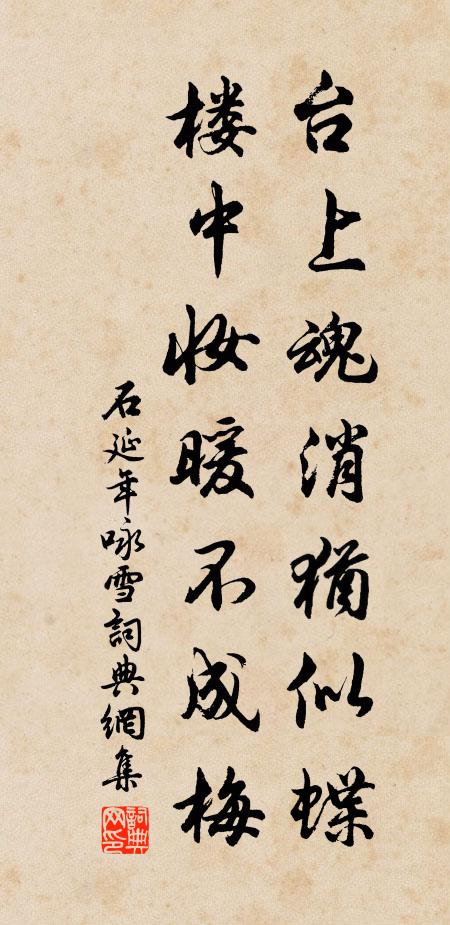 台上魂消猶似蝶
楼中妆暖不成梅
石延年咏雪詞典網集
詞典网印